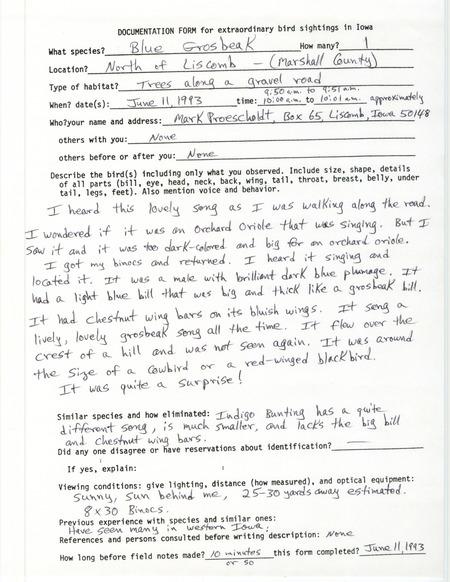 DOCUMENTATION FORM for extraordinary bird sightings in Iowa
What species? Blue Grosbeak How many? 1
Location? North of Liscomb - (Marshall County)
Type of habitat? Trees along a gravel road
9:50 a.m. to 9:51 a.m.
When? date(s): June 11, 1993 time: 10:00 a.m. to 10:01 a.m. approximately
Who? your name and address: Mark Proescholdt, Box 65, Liscomb, Iowa 50148
others with you: None
others before or after you: None
Describe the bird(s) including only what you observed. Include size, shape, details
of all parts (bill, eye, head, neck, back, wing, tail, throat, breast, belly, under
tail, legs, feet). Also mention voice and behavior.
I heard this lovely song as I was walking along the road.
I wondered if it was an Orchard Oriole that was singing. But I
saw it and it was too dark-colored and big for an orchard oriole.
I got my binocs and returned. I heard it singing and
located it. It was a male with brilliant dark blue plumage. It
had a light blue bill that was big and thick like a grosbeak bill.
It had chestnut wing bars on its bluish wings. It sang a
lively, lovely grosbeak song all the time. It flew over the
crest of a hill and was not seen again. It was around
the size of a cowbird or a red-winged blackbird.
It was quite a surprise!
Similar species and how eliminated: Indigo Bunting has a quite
different song, is much smaller, and lacks the big bill
and chestnut wing bars.
Did any one disagree or have reservations about identification? —
If yes, explain:
Viewing conditions: give lighting, distance (how measured), and optical equipment:
Sunny, sun behind me, 25-30 yards away estimated.
8 x 30 Binocs.
Previous experience with species and similar ones:
Have seen many in western Iowa.
References and persons consulted before writing description: None
How long before field notes made? 10 minutes this form completed? June 11, 1993
or so